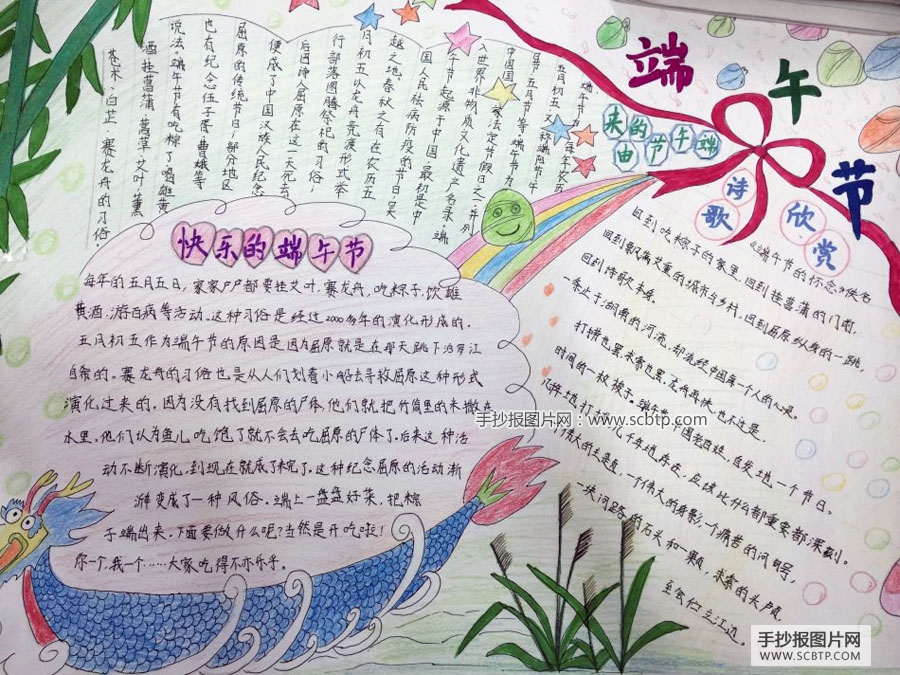 端午节
端午节的由来
端午节为每年农历
五月初五,又称端阳节、午
日节、五月节等。端午节为
中国国家法定节假日之一,并列
入世界非物质文化遗产名录。端
午节起源于中国,最初是中
国人民祛病防疫的节日,吴
越之地春秋之前有在农历五
月初五以龙舟竞渡形式举
行部落图腾祭祀的习俗;
后因诗人屈原在这一天死去,
便成了中国汉族人民纪念
屈原的传统节日;部分地区
也有纪念伍子胥、曹娥等
说法。端午节有吃粽子,喝雄黄
酒,挂菖蒲、蒿草、艾叶,薰
苍术、白芷,赛龙舟的习俗。
快乐的端午节
每年的五月五日,家家户户都要挂艾叶,赛龙舟,吃粽子,饮雄
黄酒,游百病等活动,这种习俗是经过2000多年的演化形成的。
五月初五作为端午节的原因是因为屈原就是在那天跳下汨罗江
自杀的。赛龙舟的习俗也是从人们划着小船去寻救屈原这种形式
演化过来的。因为没有找到屈原的尸体,他们就把竹筒里的米撒在
水里。他们认为鱼儿吃饱了就不会去吃屈原的尸体了。后来这种活
动不断演化,到现在就成了来完了。这种纪念屈原的活动渐
渐变成了一种风俗。端上一盘盘好菜,把粽
子端出来,下面要做什么呢?当然是开吃啦!
你一个,我一个……大家吃得不亦乐乎。
诗歌欣赏
《端午节的怀念》佚名
回到吃粽子的家里,回到挂菖蒲的门前,
回到飘满艾熏的城市与乡村,回到屈原纵身的一跳,
回到诗歌本身。
一条止于汨罗的河流,却流经中国每一个人的心灵。
打捞也罢,米粽也罢,龙舟再快,也不过是,
时间的一枚楔子。端午节,中国老百姓,自发地一个节日。
几拜地,打几千年地存在,应该比什么都重要都深刻。
伟大的夫是直,一个伟大的身影,一个痛苦的问号,
一块问路的石头和一颗,求索的头颅,
至今伫立江边。
手抄报图片网:www.scbtp.com
手抄报图片网
WWW.SCBTP.COM